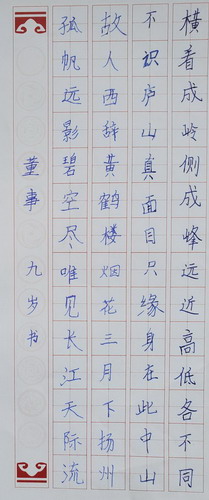 横看成岭侧成峰远近高低各不同
不识庐山真面目只缘身在此中山
故人西辞黄鹤楼烟花三月下扬州
孤帆远影碧空尽唯见长江天际流
董事 九岁书